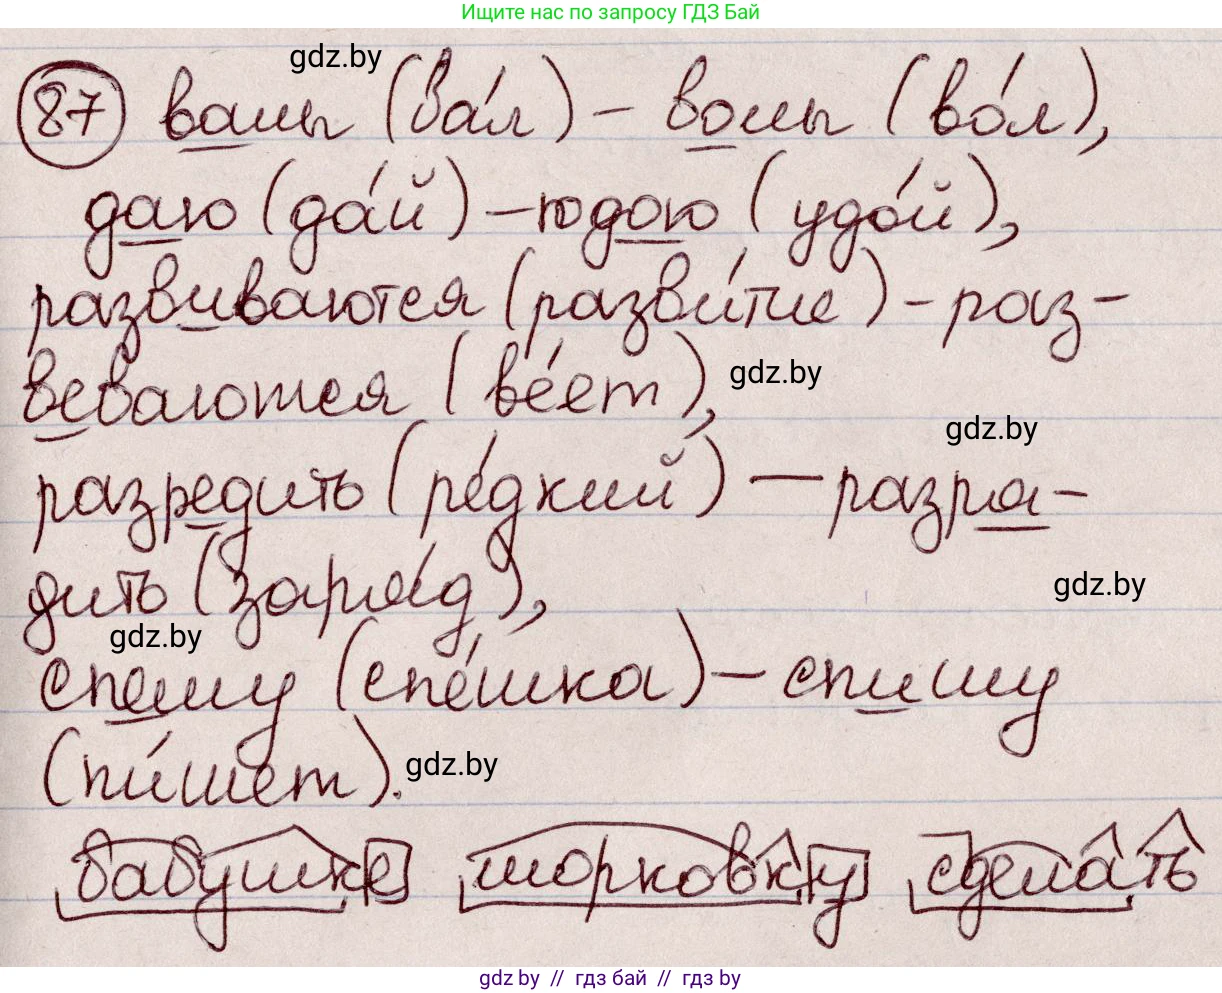 Ищите нас по запросу ГДЗ Бай
gdz.by
87 валы (ва́л) – волы (во́л),
даю (да́й) – юдою (удо́й),
развиваются (разви́тие) – раз-
веваются (ве́ет),
gdz.by
gdz.by
разредить (ре́дкий) – разря-
дить (заря́д),
gdz.by
gdz.by
спешу (спе́шка) – спишу
(пи́шет).
gdz.by
бабушке морковку сделать
gdz by // гдз бай // гдз by